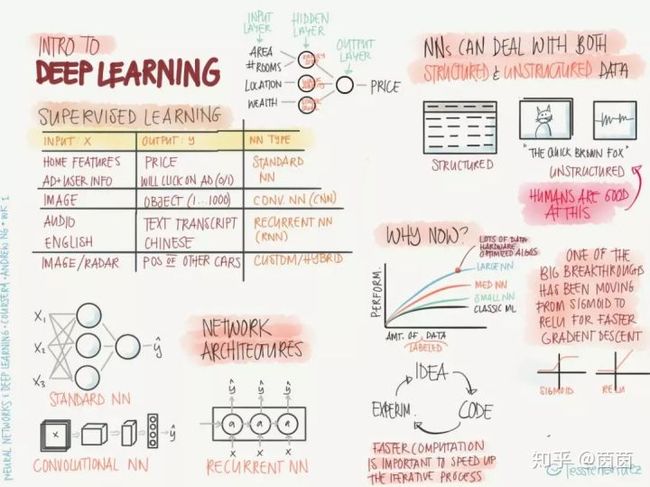 INTRO TO
DEEP LEARNING
INPUT LAYER
HIDDEN LAYER
OUTPUT LAYER
AREA
#ROOMS
LOCATION
WEALTH
PRICE
SUPERVISED LEARNING
INPUT: X OUTPUT: y NN TYPE
HOME FEATURES PRICE STANDARD
AD+USER INFO WILL CLICK ON AD (0/1) NN
IMAGE OBJECT (1...1000) CONV. NN (CNN)
AUDIO TEXT TRANSCRIPT RECURRENT NN
ENGLISH CHINESE (RNN)
IMAGE/RADAR POS OF OTHER CARS CUSTOM/HYBRID
NNs CAN DEAL WITH BOTH
STRUCTURED & UNSTRUCTURED DATA
STRUCTURED
"THE QUICK BROWN FOX"
UNSTRUCTURED
HUMANS ARE GOOD
AT THIS
NETWORK
ARCHITECTURES
X1
X2
X3
ŷ
STANDARD NN
X
ŷ
CONVOLUTIONAL NN
ŷ ŷ ŷ
a a a
X X X
RECURRENT NN
WHY NOW?
LOTS OF DATA
HARDWARE
OPTIMIZED ALGOS
LARGE NN
MED NN
SMALL NN
CLASSIC ML
PERFORM.
AMT. OF DATA
LABELED
IDEA
CODE
EXPERIM.
FASTER COMPUTATION
IS IMPORTANT TO SPEED UP
THE ITERATIVE PROCESS
ONE OF THE
BIG BREAKTHROUGHS
HAS BEEN MOVING
FROM SIGMOID TO
RELU FOR FASTER
GRADIENT DESCENT
SIGMOID
RELU
NEURAL NETWORKS & DEEP LEARNING • COURSERA • ANDREW NG • WK 1
知乎 @茵茵